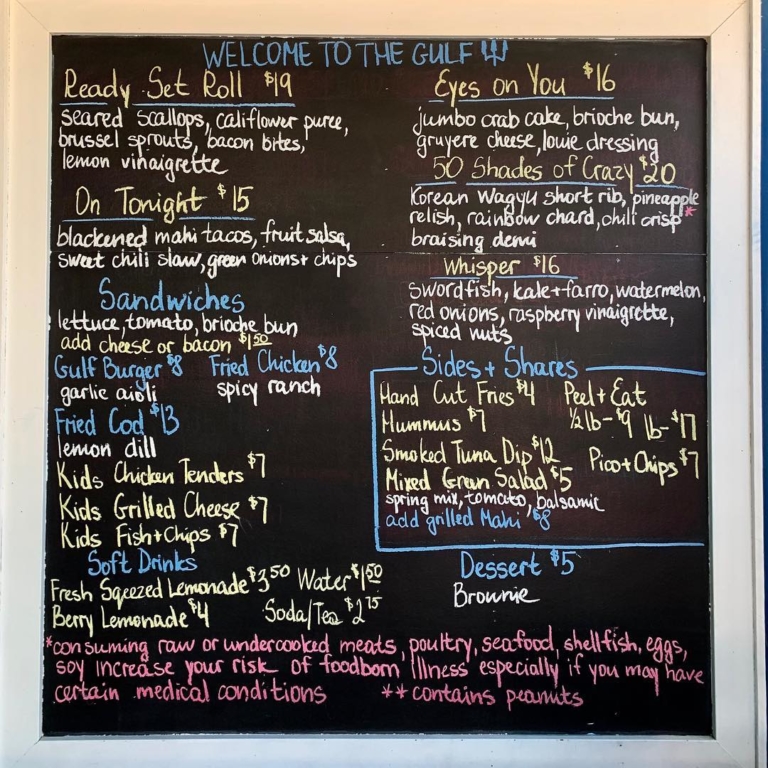 WELCOME TO THE GULF
Ready Set Roll $19
seared scallops, califlower puree,
brussel sprouts, bacon bites,
lemon vinaigrette
On Tonight $15
blackened mahi tacos, fruit salsa,
sweet chili slaw, green onions + chips
Eyes on You $16
jumbo crab cake, brioche bun,
gruyere cheese, louie dressing
50 Shades of Crazy $20
Korean Wagyu short rib, pineapple
relish, rainbow chard, chili crisp*
braising demi
Whisper $16
swordfish, kale + farro, watermelon,
red onions, raspberry vinaigrette,
spiced nuts
Sandwiches
lettuce, tomato, brioche bun
add cheese or bacon $1.50
Gulf Burger $8 Fried Chicken $8
garlic aioli spicy ranch
Fried Cod $13
lemon dill
Kids Chicken Tenders $7
Kids Grilled Cheese $7
Kids Fish + Chips $7
Sides + Shares
Hand Cut Fries $4 Peel + Eat
Hummus $7 1/2 lb - $9 lb - $17
Smoked Tuna Dip $12
Pico + Chips $7
Mixed Green Salad $5
spring mix, tomato, balsamic
add grilled Mahi $8
Soft Drinks
Fresh Sqeezed Lemonade $3.50 Water $1.50
Berry Lemonade $4 Soda/Tea $2.75
Dessert $5
Brownie
*consuming raw or undercooked meats, poultry, seafood, shellfish, eggs,
soy increase your risk of foodborn illness especially if you may have
certain medical conditions ** contains peanuts